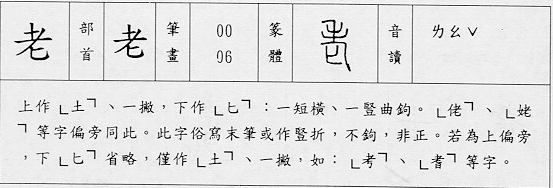 老 部首 老 筆畫 00 06 篆體 音讀 ㄌㄠˇ
上作「土」、一撇，下作「匕」：一短橫、一豎曲鉤。「佬」、「姥
」等字偏旁同此。此字俗寫末筆或作豎折，不鉤，非正。若為上偏旁
，下「匕」省略，僅作「土」、一撇，如：「考」、「耆」等字。